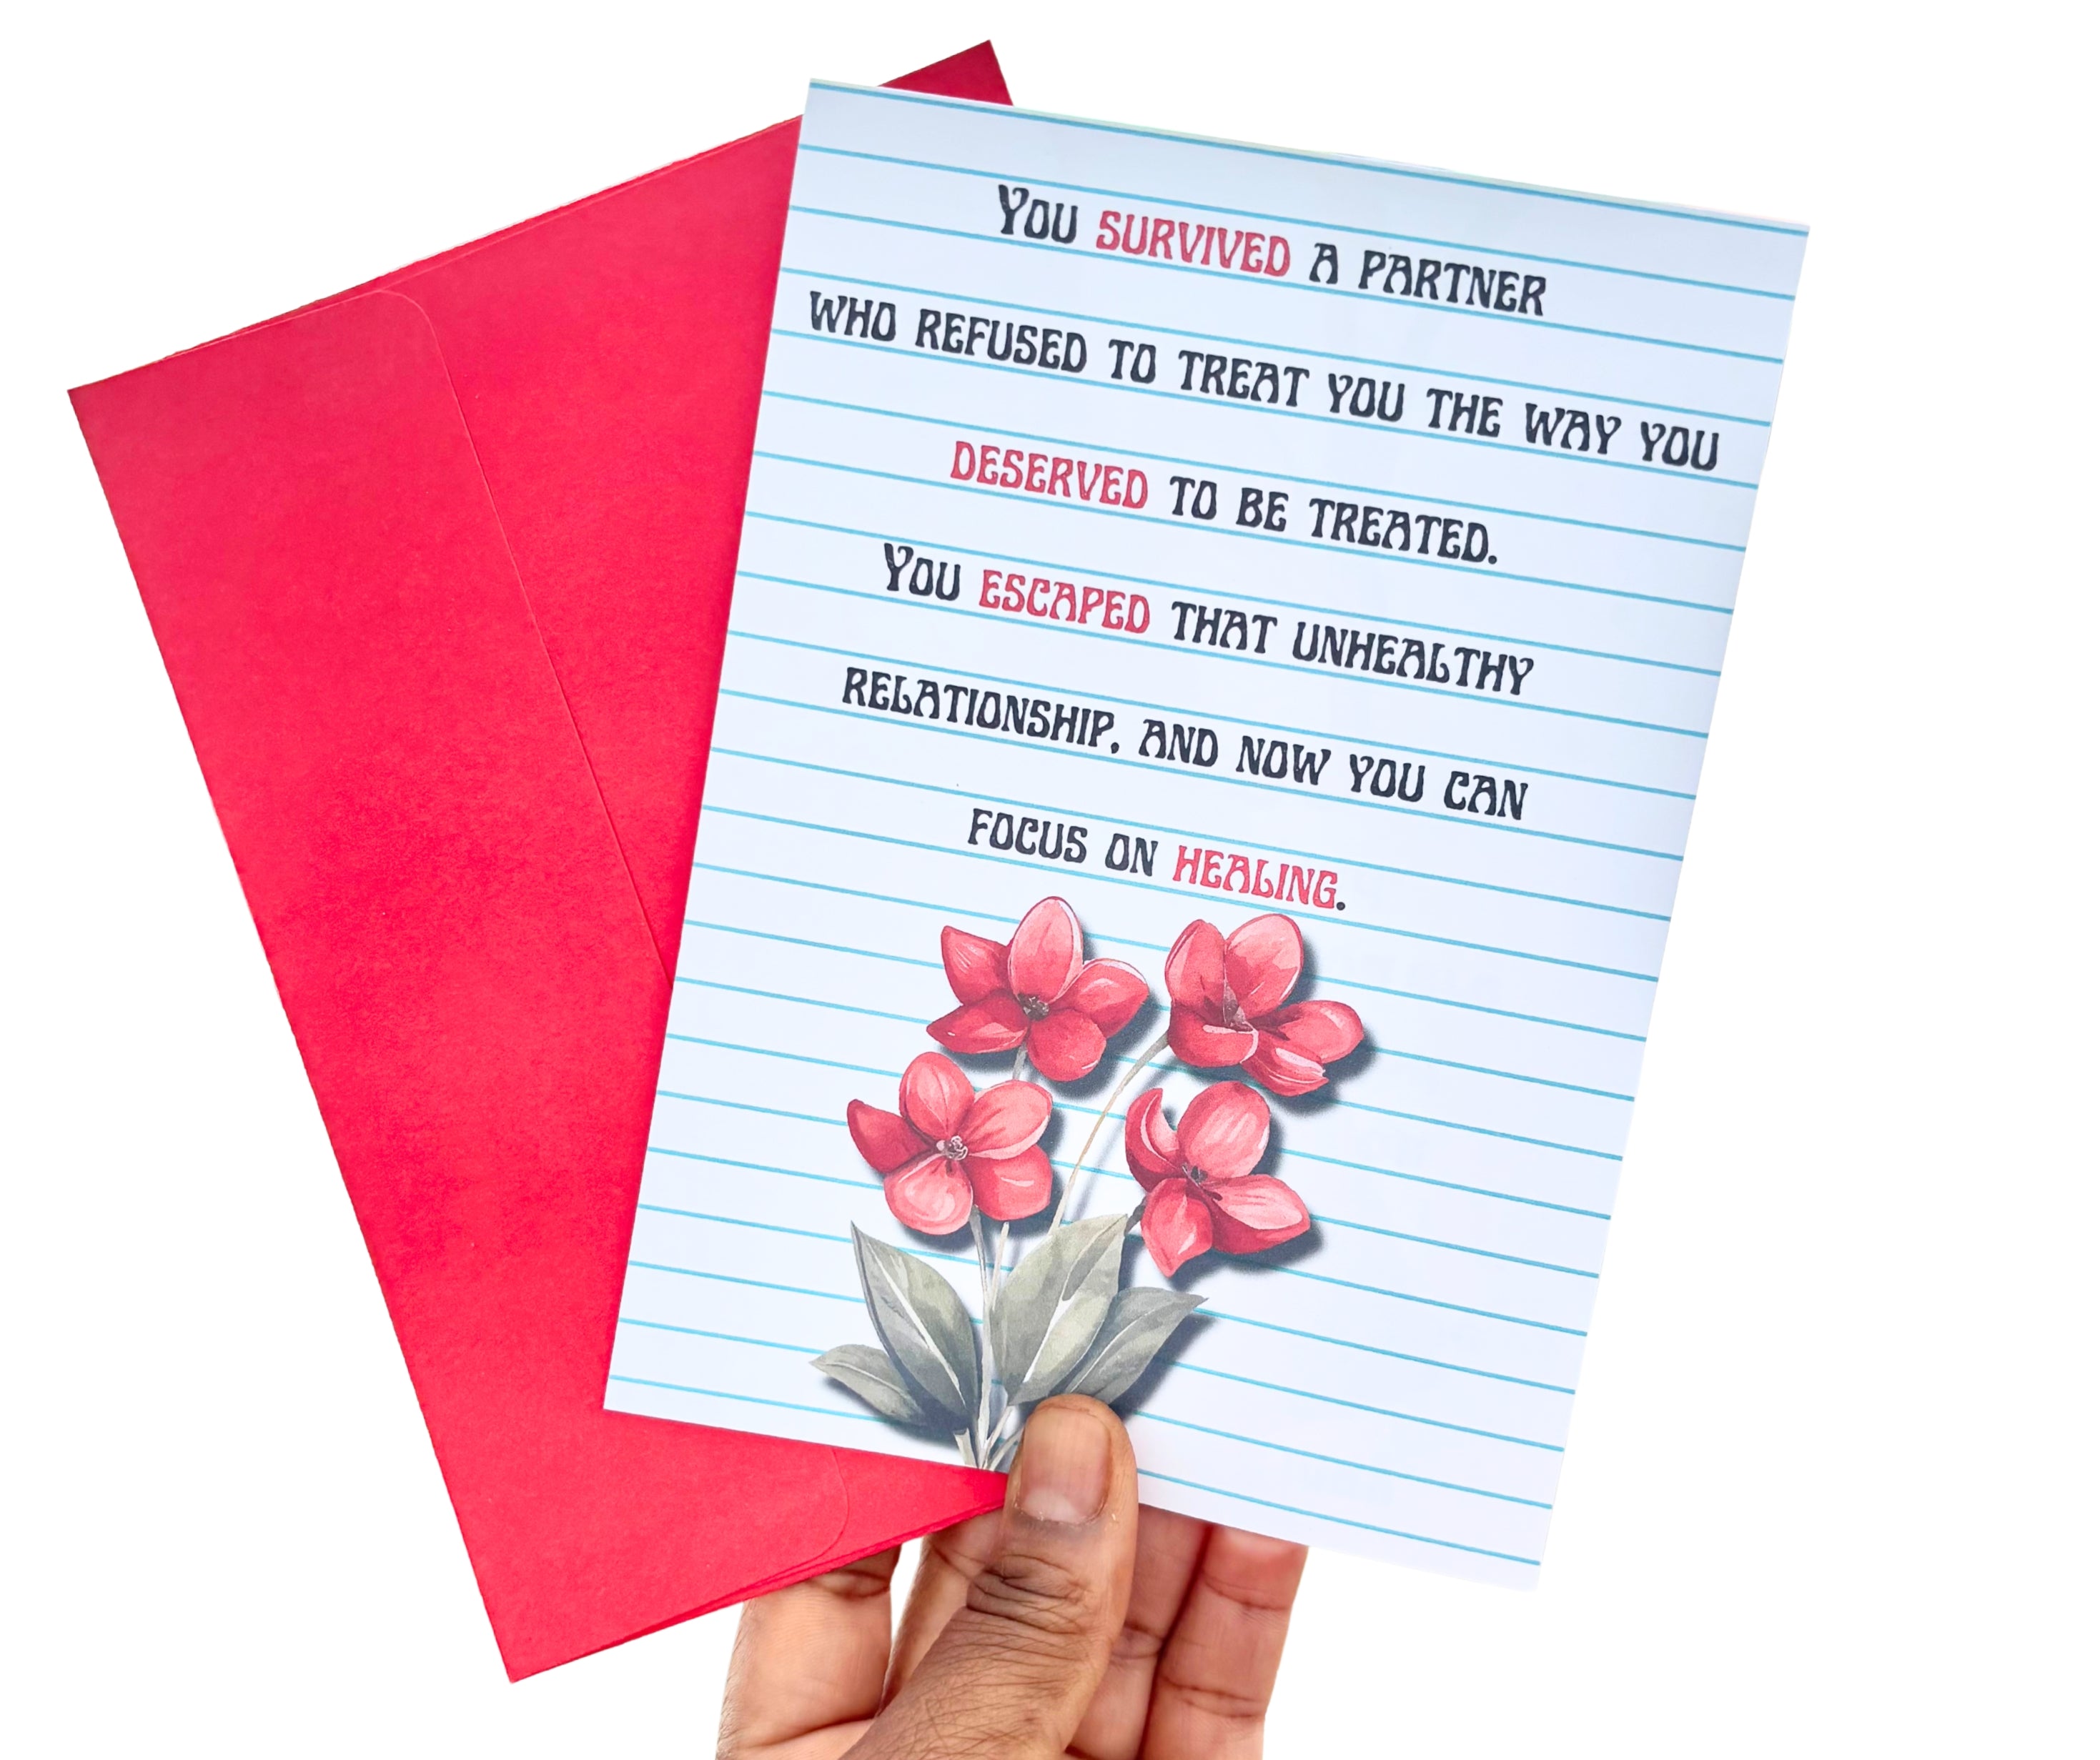 You SURVIVED A PARTNER
WHO REFUSED TO TREAT YOU THE WAY YOU
DESERVED TO BE TREATED.
You ESCAPED THAT UNHEALTHY
RELATIONSHIP, AND NOW YOU CAN
FOCUS ON HEALING.